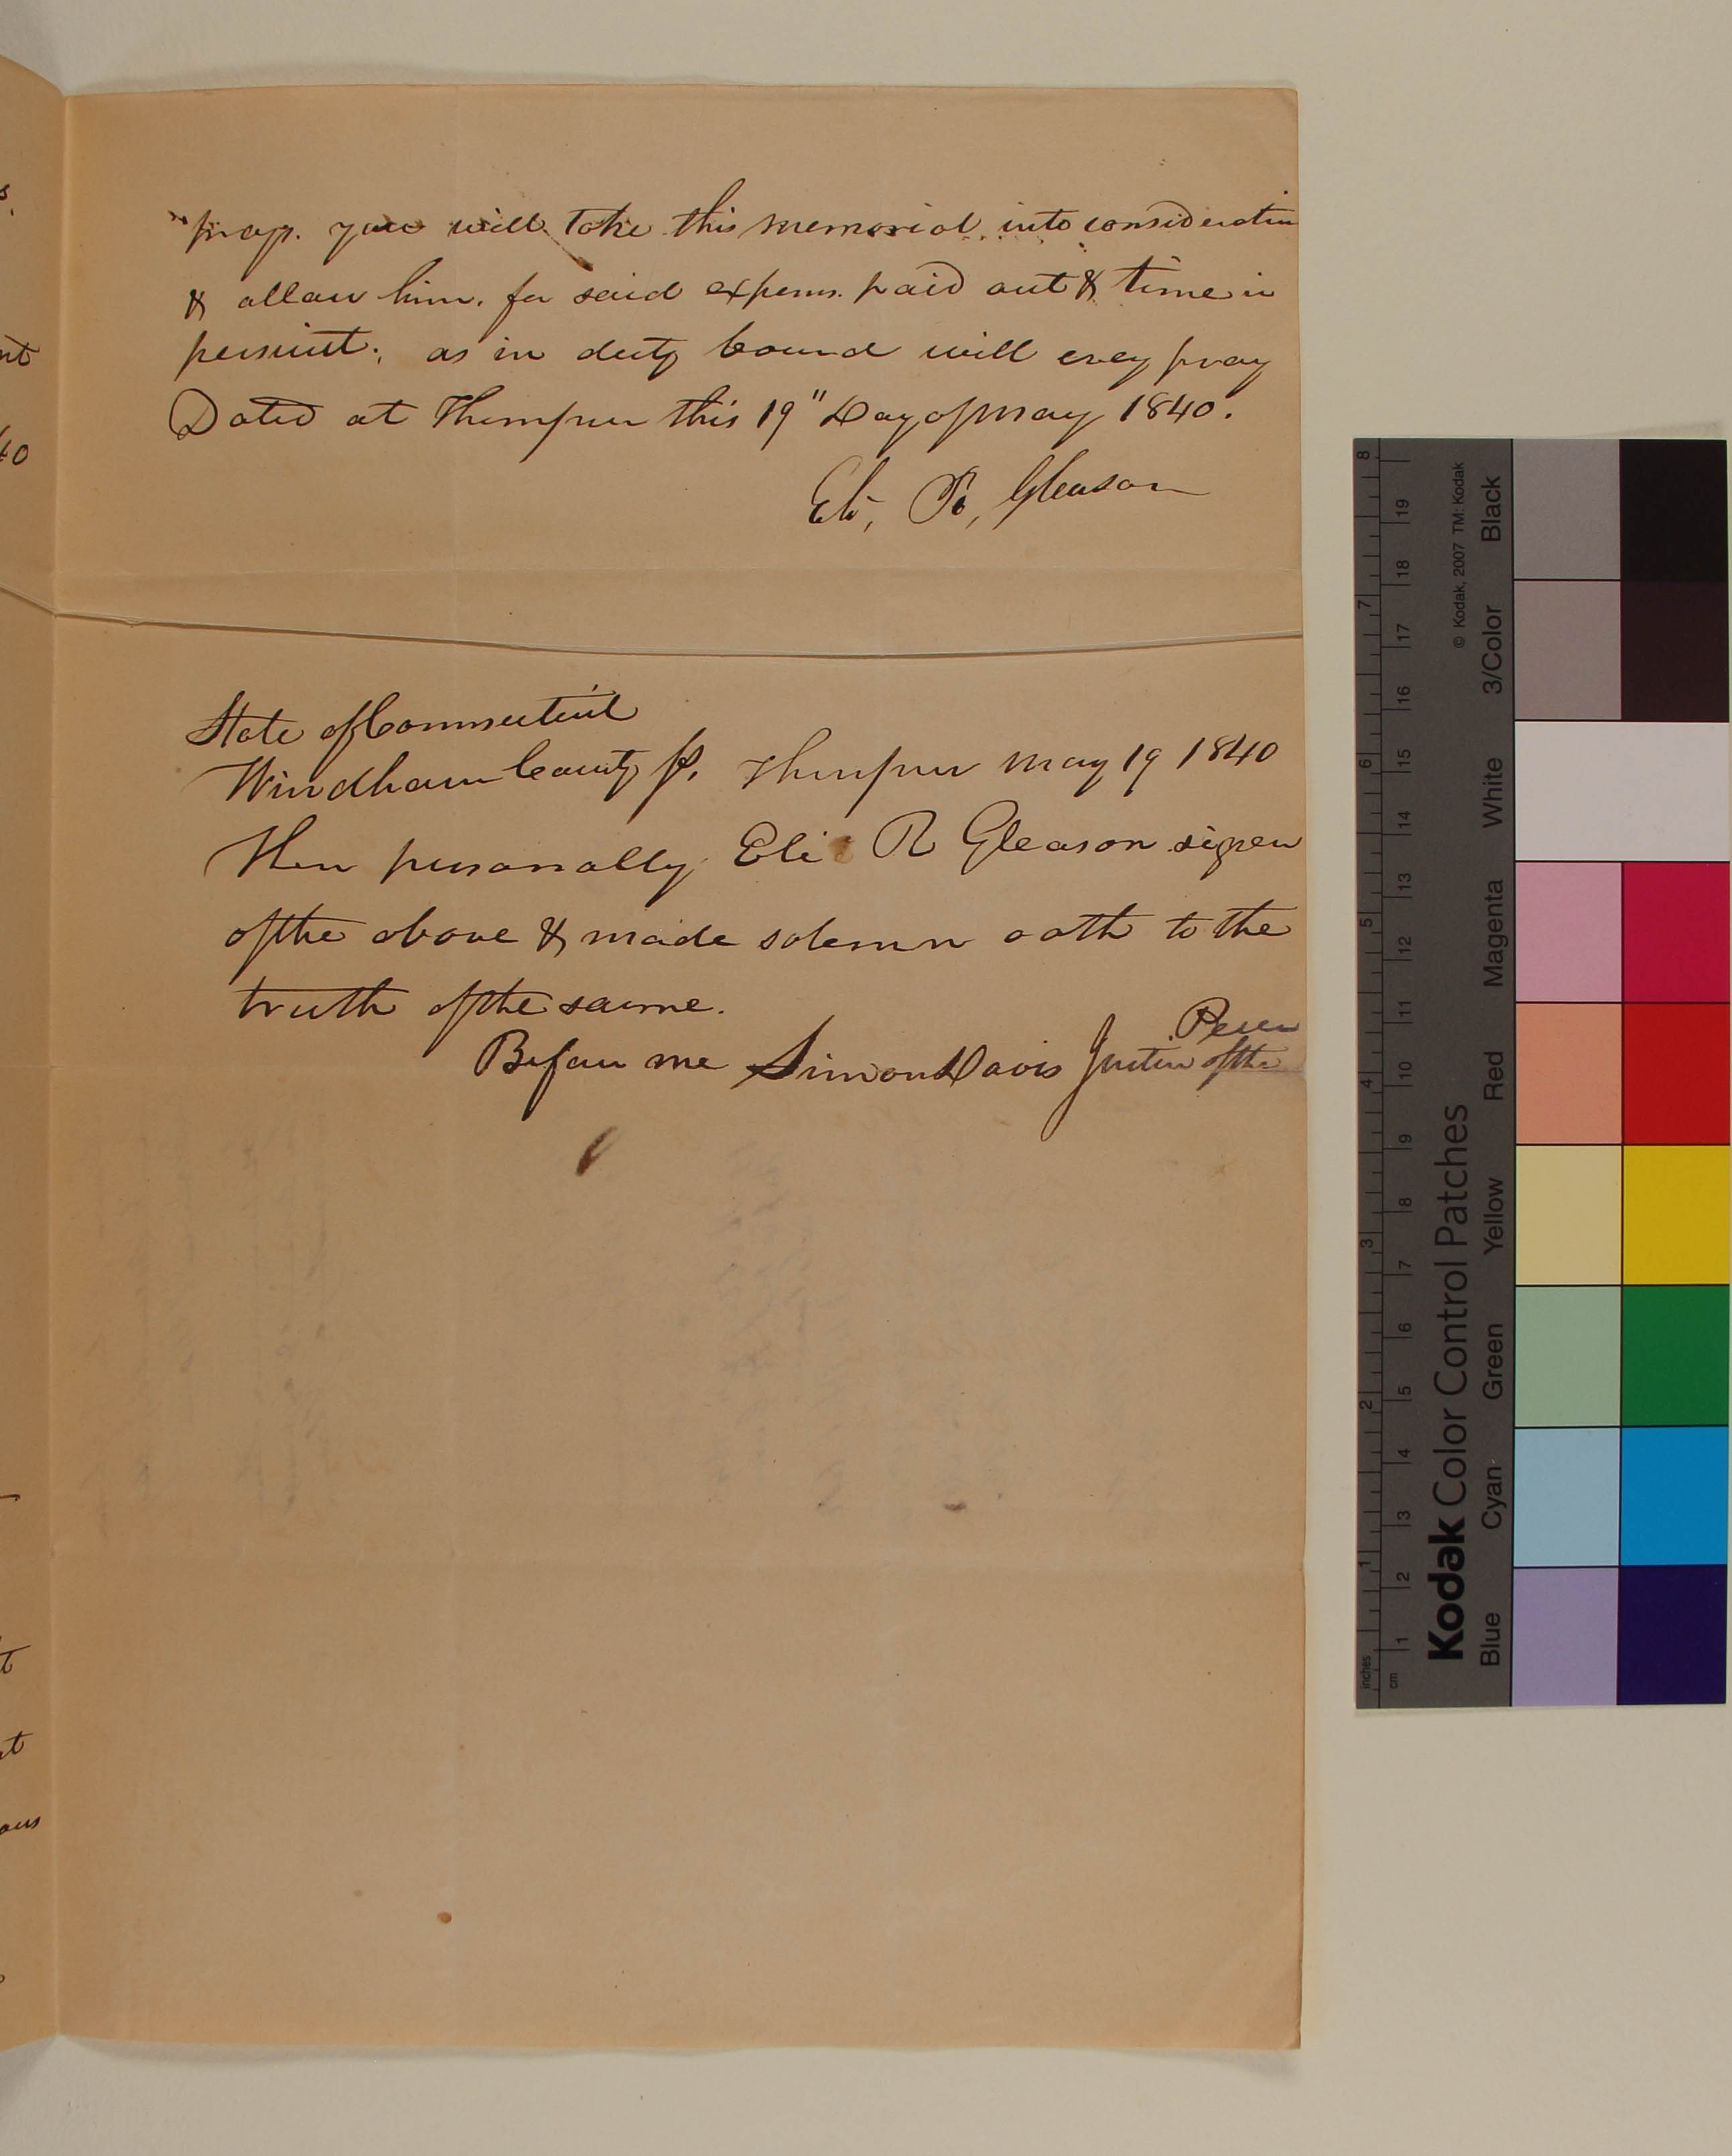 pray. you will take this memorial into consideration
& allow him. for said expens. paid out & time in
persuut; as in duty bound will evey pray
Dated at Thompson this 19" Day of May 1840.
Eli, R, Gleason
State of Connecticut
Windham County Ss. Thompson May 19 1840
Then personally Eli R Gleason signer
of the above & made solemn oath to the
truth of the same.
Before me Simon Davis Justice of the
Peace
s.
nt
40
t
at
ous
inches 1 2 3 4 5 6 7 8
cm 1 2 3 4 5 6 7 8 9 10 11 12 13 14 15 16 17 18 19
Kodak Color Control Patches
© Kodak, 2007 TM: Kodak
Blue Cyan Green Yellow Red Magenta White 3/Color Black